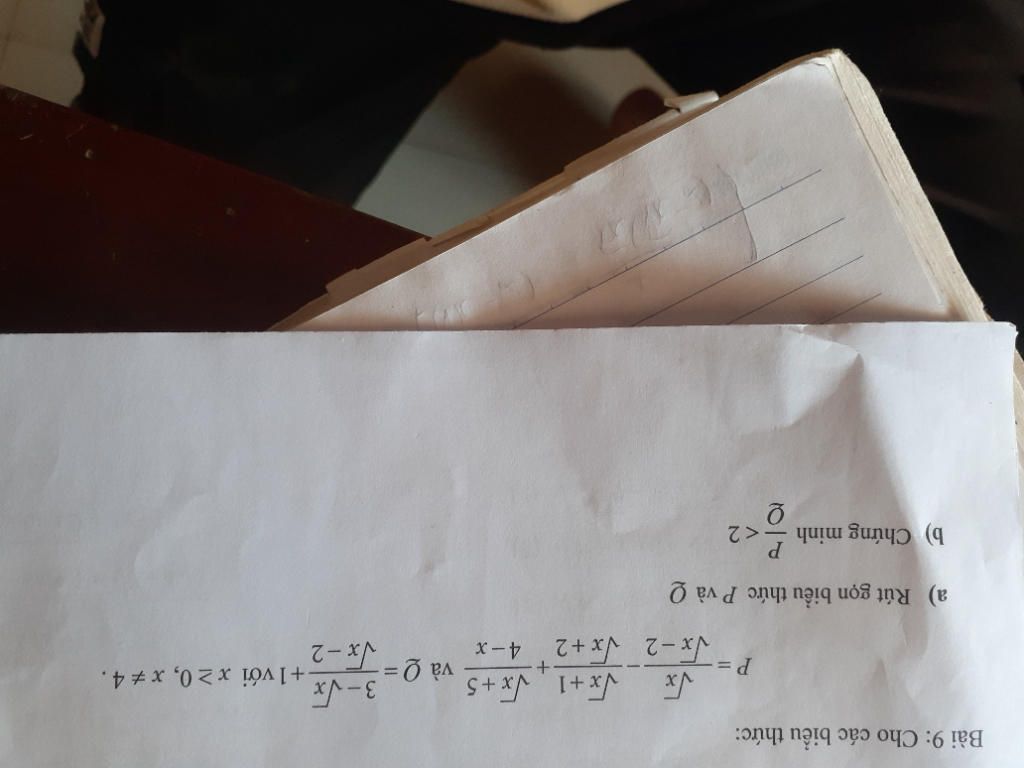 Bài 9: Cho các biểu thức:
P = √x/(√x − 2) − (√x + 1)/(√x + 2) + (√x + 5)/(4 − x) và Q = (3 − √x)/(√x − 2) + 1 với x ≥ 0, x ≠ 4.
a) Rút gọn biểu thức P và Q
b) Chứng minh P/Q < 2